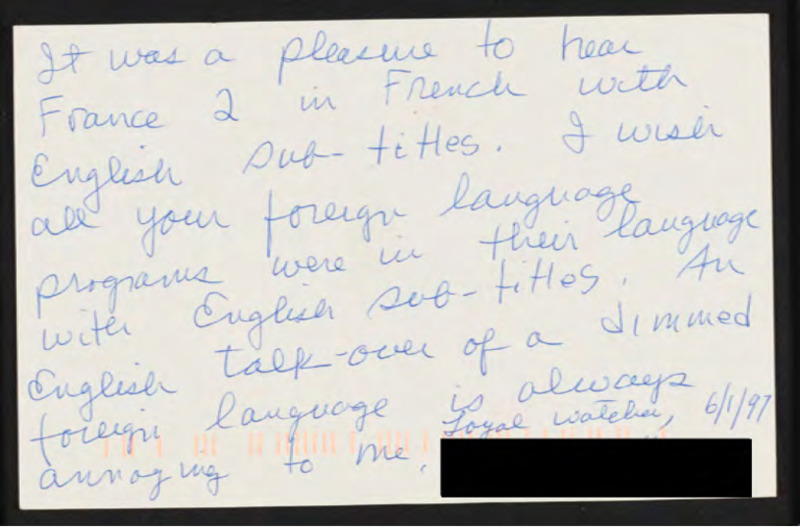 It was a pleasure to hear
France 2 in French with
English sub-titles. I wish
all your foreign language
programs were in their language
with English sub-titles. An
English talk-over of a dimmed
foreign language is always
annoying to me.
Loyal watcher, 6/1/97